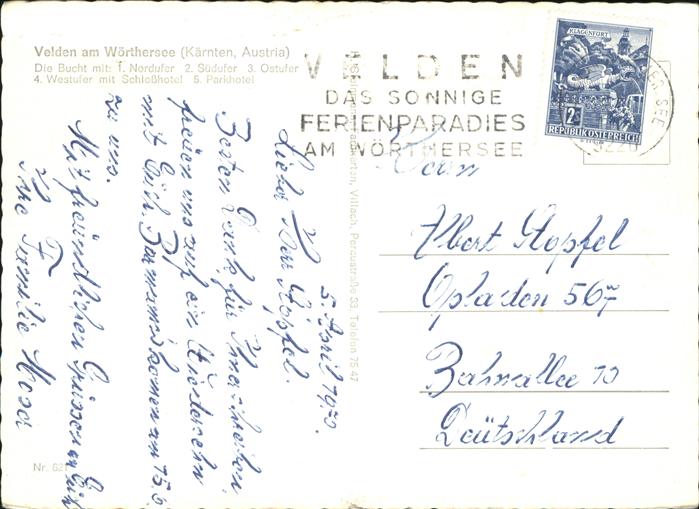 Velden am Wörthersee (Kärnten, Austria)
Die Bucht mit: 1. Nordufer 2. Südufer 3. Ostufer
4. Westufer mit Schloßhotel 5. Parkhotel
VELDEN
DAS SONNIGE
FERIENPARADIES
AM WÖRTHERSEE
KLAGENFURT
2 S
REPUBLIK ÖSTERREICH
SEE
9220
Villach, Peraustraße 33, Telefon 75 47
5. April 1970.
Lieber Herr Stopfel.
Besten Dank für Ihr Schreiben
freuen uns auf ein Wiedersehn
mit Euch. Zimmer
am 15.6.
zu uns.
Mit freundlichen Grüssen an Euch
Ihre Familie Moser
Herrn
Albert Stopfel
Opladen 567
Bahnallee 10
Deutschland
Nr. 621